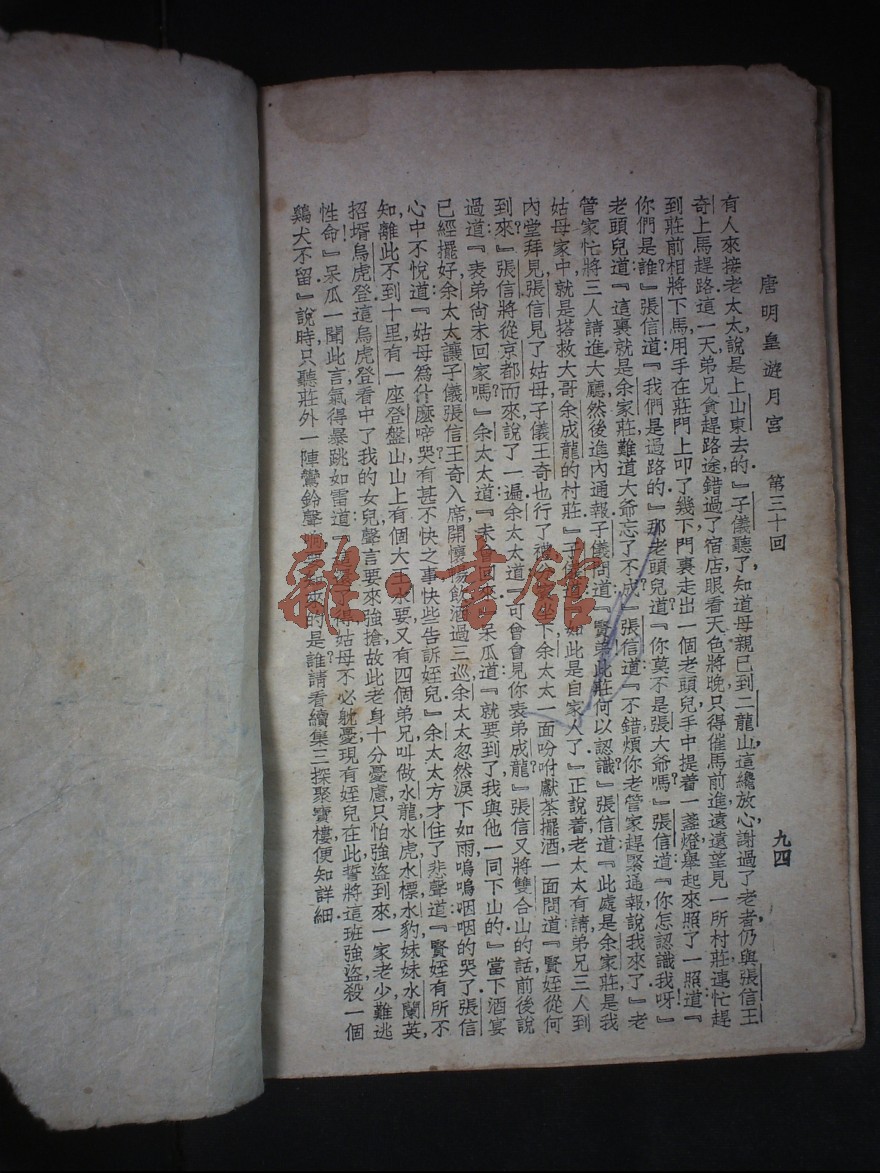 唐明皇遊月宮　第三十回　九四
有人來接老太太,說是上山東去的』子儀聽了,知道母親已到二龍山,這纔放心,謝過了老者,仍與張信王
奇上馬趕路,這一天,弟兄貪趕路途,錯過了宿店,眼看天色將晚,只得催馬前進,遠遠望見一所村莊,連忙趕
到莊前,相將下馬,用手在莊門上叩了幾下,門裏走出一個老頭兒,手中提着一盞燈,舉起來照了一照道:『
你們是誰?』張信道:『我們是過路的』那老頭兒道:『你莫不是張大爺嗎?』張信道:『你怎認識我呀?』
老頭兒道:『這裏就是余家莊,難道大爺忘了不成?』張信道:『不錯,煩你老管家趕緊通報,說我來了』老
管家忙將三人請進大廳,然後進內通報,子儀問道:『賢弟此莊何以認識?』張信道:『此處是余家莊,是我
姑母家中,就是搭救大哥余成龍的村莊』子儀 如此是自家人了』正說着,老太太有請,弟兄三人到
內堂拜見,張信見了姑母,子儀王奇也行了禮 下,余太太一面吩咐獻茶擺酒,一面問道:『賢姪從何
到來?』張信將從京都而來,說了一遍,余太太道: 可曾會見你表弟成龍?』張信又將雙合山的話前後說
過,道:『表弟尚未回家嗎?』余太太道:『未曾回來』呆瓜道:『就要到了,我與他一同下山的』當下酒宴
已經擺好,余太太讓子儀張信王奇入席,開懷暢飲,酒過三巡,余太太忽然淚下如雨,嗚嗚咽咽的哭了,張信
心中不悅道:『姑母為什麼啼哭,有甚不快之事,快些告訴姪兒』余太太方才住了悲聲道:『賢姪有所不
知,離此不到十里,有一座登盤山,山上有個大王,水要又有四個弟兄,叫做水龍水虎水標水豹,妹妹水蘭英,
招壻烏虎登,這烏虎登看中了我的女兒,聲言要來強搶,故此老身十分憂慮,只怕強盜到來,一家老少難逃
性命!』呆瓜一聞此言,氣得暴跳如雷道:『 得,姑母不必躭憂,現有姪兒在此,誓將這班強盜,殺一個
鷄犬不留』說時,只聽莊外一陣鸞鈴聲 來的是誰?請看續集三探聚寶樓,便知詳細.
雜·書館